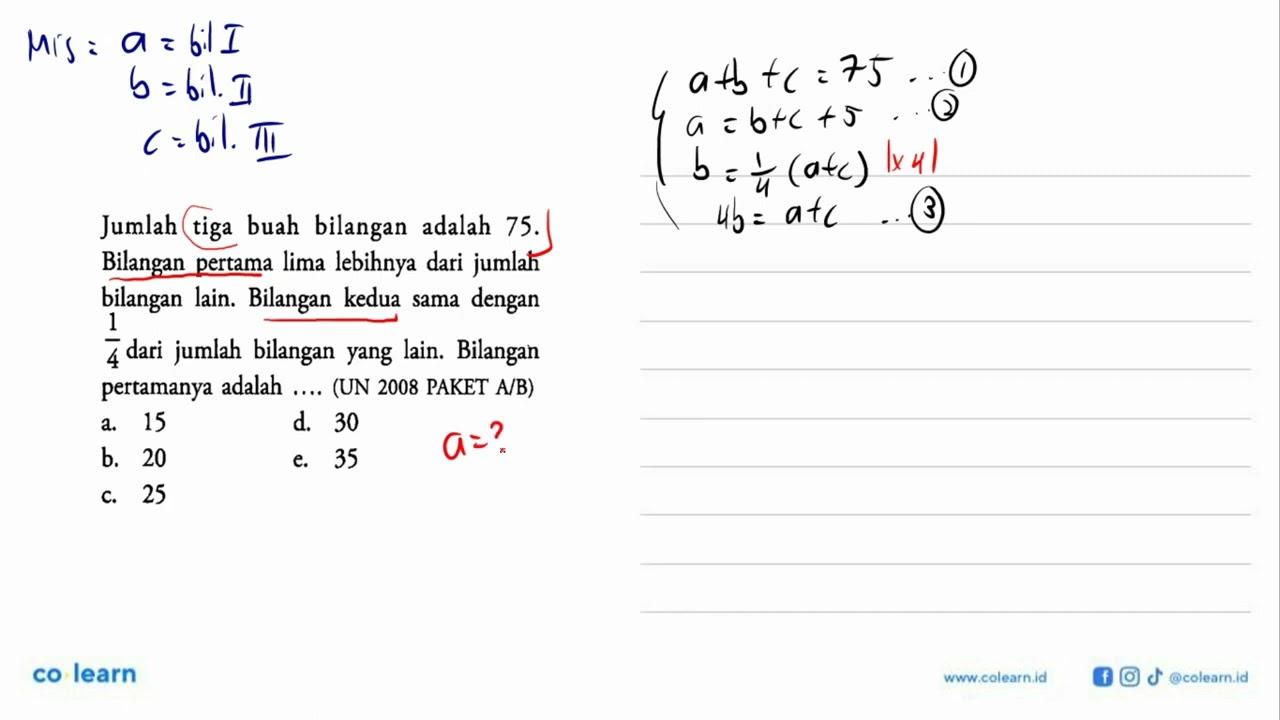 Mis = a = bil I
b = bil. II
c = bil. III
a+b+c = 75 ... ①
a = b+c+5 ... ②
b = 1/4 (a+c) |x4|
4b = a+c ... ③
Jumlah tiga buah bilangan adalah 75.
Bilangan pertama lima lebihnya dari jumlah
bilangan lain. Bilangan kedua sama dengan
1/4 dari jumlah bilangan yang lain. Bilangan
pertamanya adalah .... (UN 2008 PAKET A/B)
a. 15 d. 30
b. 20 e. 35
c. 25
a=?
co learn
www.colearn.id @colearn.id